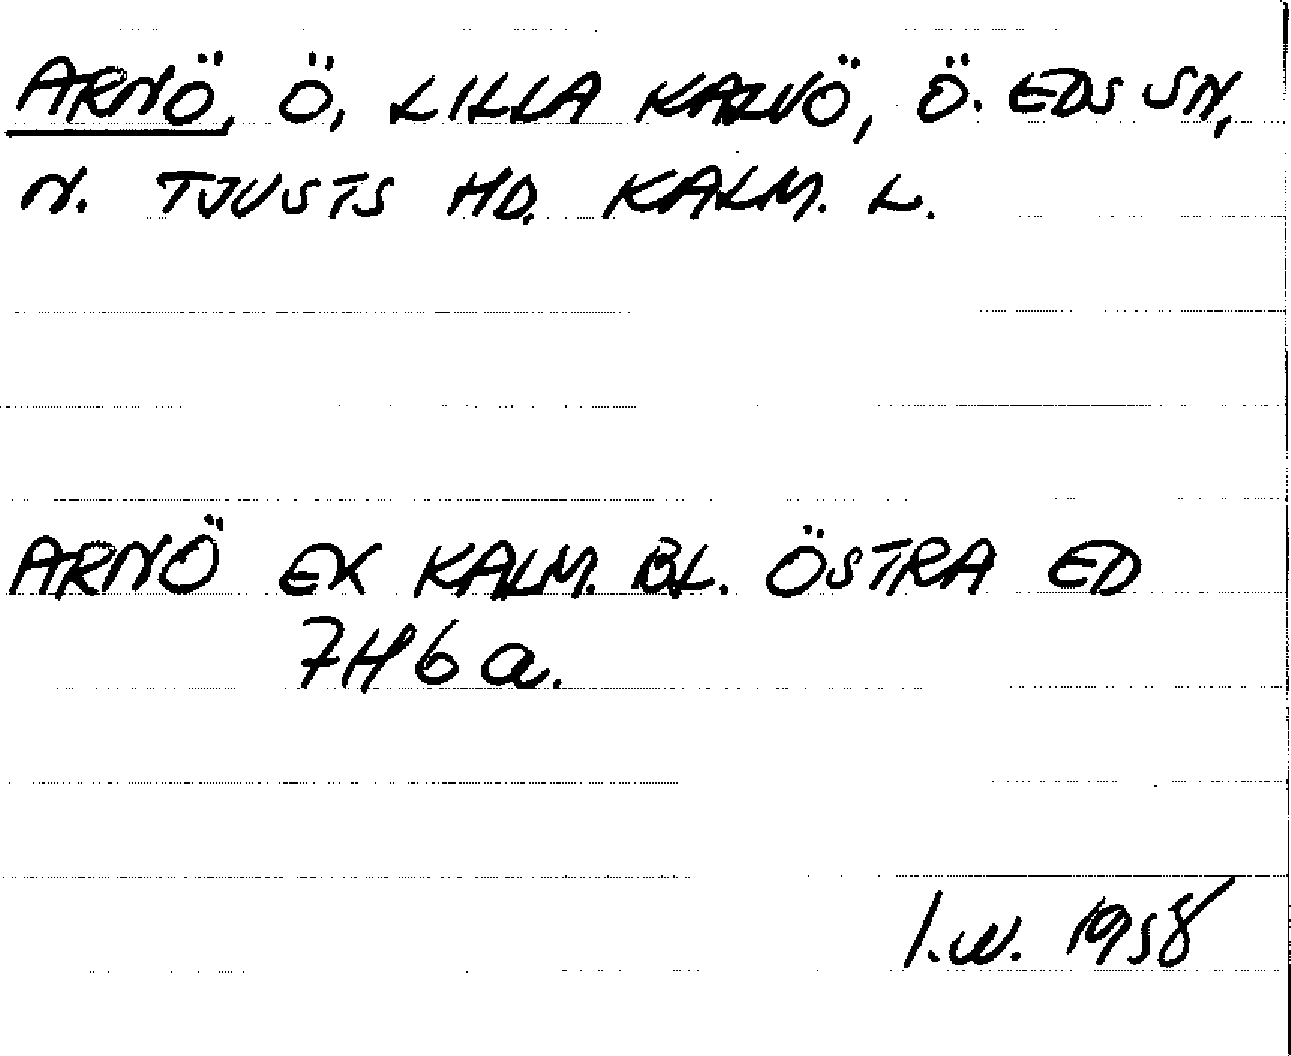 ARNÖ, Ö, LILLA KALVÖ, Ö. EDS SN,
N. TJUSTS HD. KALM. L.
ARNÖ EK KALM. BL. ÖSTRA ED
7H6a.
I.W. 1958